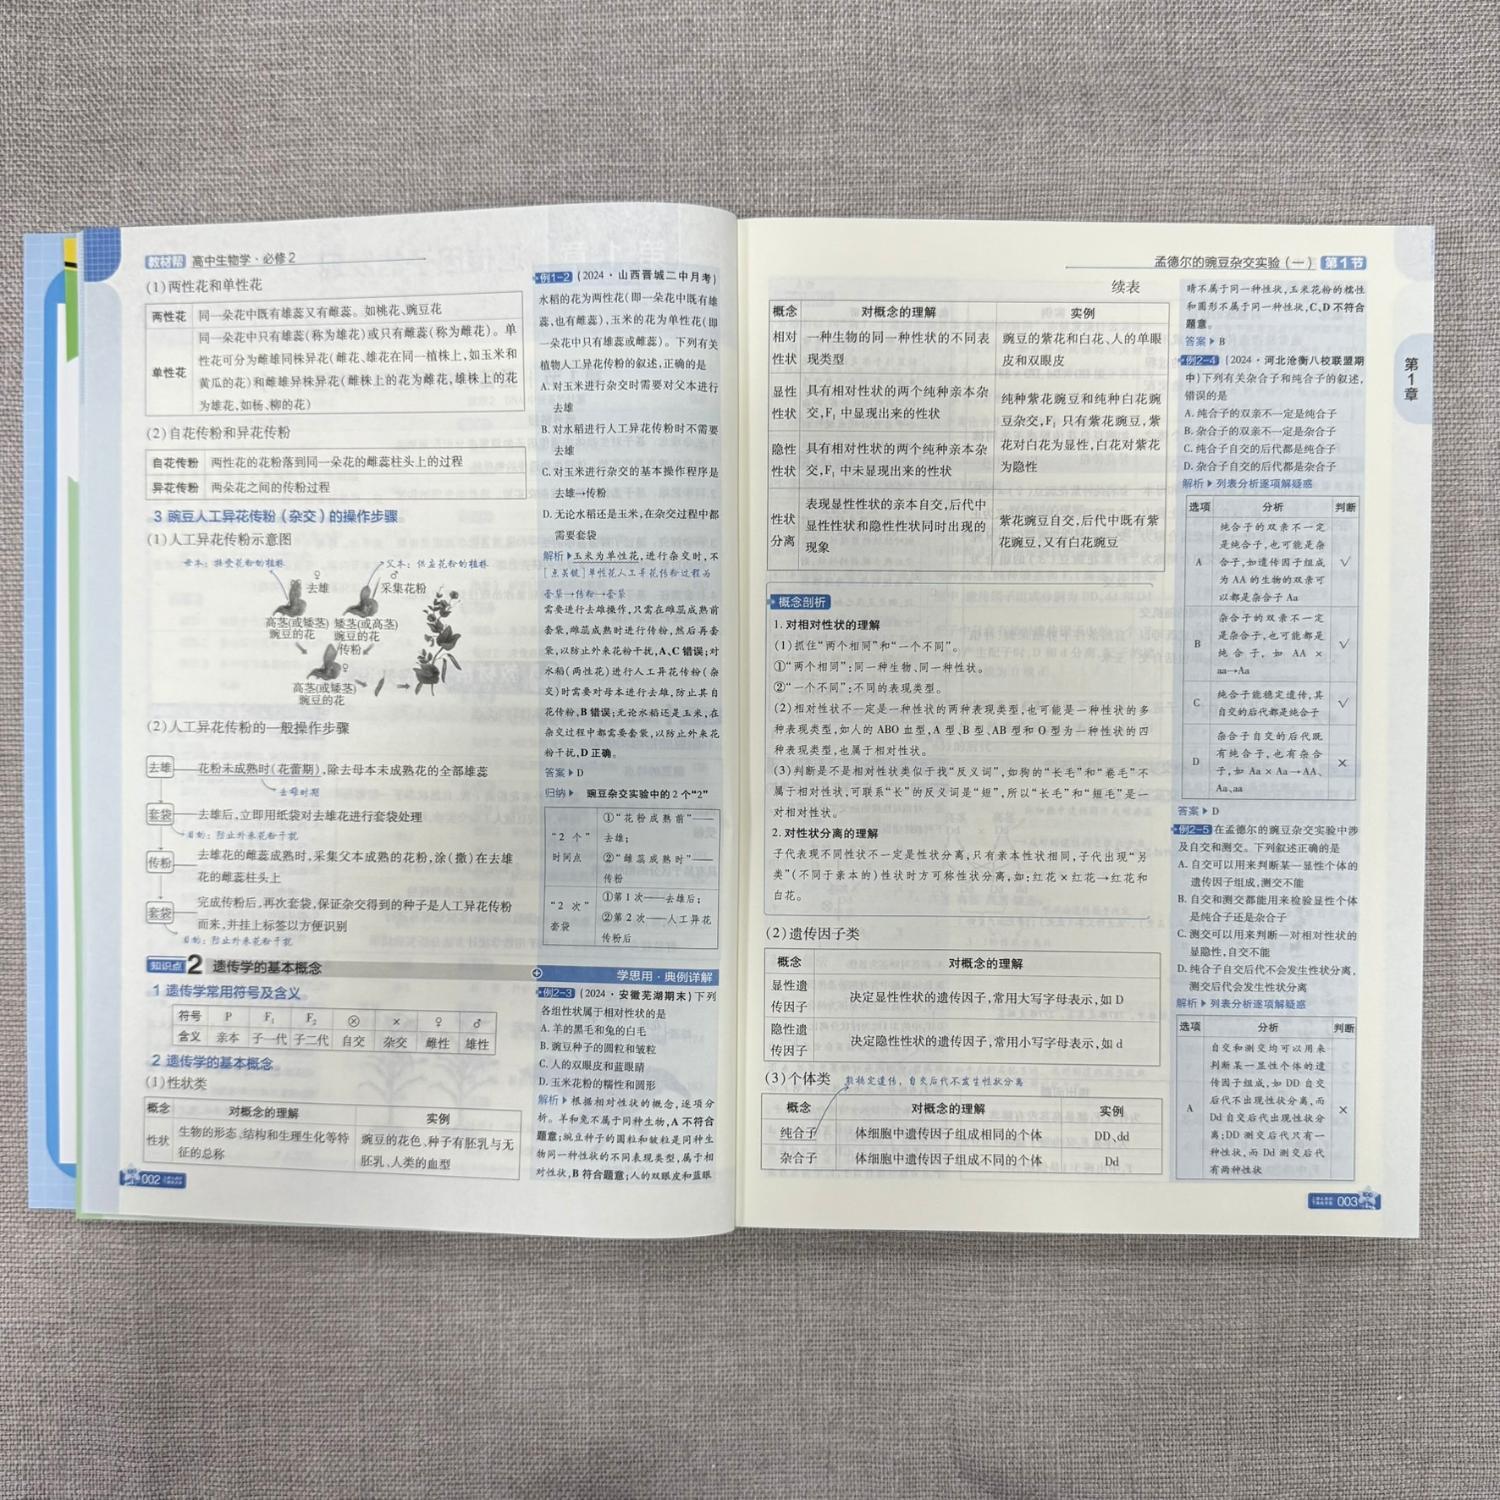 教材帮 高中生物学·必修2
(1)两性花和单性花
两性花 同一朵花中既有雄蕊又有雌蕊。如桃花、豌豆花
同一朵花中只有雄蕊(称为雄花)或只有雌蕊(称为雌花)。单
单性花 性花可分为雌雄同株异花(雌花、雄花在同一植株上,如玉米和
黄瓜的花)和雌雄异株异花(雌株上的花为雌花,雄株上的花
为雄花,如杨、柳的花)
(2)自花传粉和异花传粉
自花传粉 两性花的花粉落到同一朵花的雌蕊柱头上的过程
异花传粉 两朵花之间的传粉过程
3 豌豆人工异花传粉(杂交)的操作步骤
(1)人工异花传粉示意图
母本:接受花粉的植株 父本:供应花粉的植株
♀ ♂
去雄 采集花粉
高茎(或矮茎) 矮茎(或高茎)
豌豆的花 豌豆的花
传粉
♀
高茎(或矮茎)
豌豆的花
(2)人工异花传粉的一般操作步骤
去雄 花粉未成熟时(花蕾期),除去母本未成熟花的全部雄蕊
去雄时期
套袋 去雄后,立即用纸袋对去雄花进行套袋处理
目的:防止外来花粉干扰
传粉 去雄花的雌蕊成熟时,采集父本成熟的花粉,涂(撒)在去雄
花的雌蕊柱头上
完成传粉后,再次套袋,保证杂交得到的种子是人工异花传粉
套袋 而来,并挂上标签以方便识别
目的:防止外来花粉干扰
知识点2 遗传学的基本概念
1 遗传学常用符号及含义
符号 P F₁ F₂ ⊗ × ♀ ♂
含义 亲本 子一代 子二代 自交 杂交 雌性 雄性
2 遗传学的基本概念
(1)性状类
概念 对概念的理解 实例
性状 生物的形态、结构和生理生化等特 豌豆的花色、种子有胚乳与无
征的总称 胚乳、人类的血型
002
例1-2 (2024·山西晋城二中月考)
水稻的花为两性花(即一朵花中既有雄
蕊,也有雌蕊),玉米的花为单性花(即
一朵花中只有雄蕊或雌蕊)。下列有关
植物人工异花传粉的叙述,正确的是
A. 对玉米进行杂交时需要对父本进行
去雄
B. 对水稻进行人工异花传粉时不需要
去雄
C. 对玉米进行杂交的基本操作程序是
去雄→传粉
D. 无论水稻还是玉米,在杂交过程中都
需要套袋
解析▶玉米为单性花,进行杂交时,不
[点关键]单性花人工异花传粉过程为
套袋→传粉→套袋
需要进行去雄操作,只需在雌蕊成熟前
套袋,雌蕊成熟时进行传粉,然后再套
袋,以防止外来花粉干扰,A、C错误;对
水稻(两性花)进行人工异花传粉(杂
交)时需要对母本进行去雄,防止其自
花传粉,B错误;无论水稻还是玉米,在
杂交过程中都需要套袋,以防止外来花
粉干扰,D正确。
答案▶D
归纳▶ 豌豆杂交实验中的2个“2”
①“花粉成熟前”——
“2个” 去雄;
时间点 ②“雌蕊成熟时”——
传粉
“2次” ①第1次——去雄后;
套袋 ②第2次——人工异花
传粉后
学思用·典例详解
例2-3 (2024·安徽芜湖期末)下列
各组性状属于相对性状的是
A. 羊的黑毛和兔的白毛
B. 豌豆种子的圆粒和皱粒
C. 人的双眼皮和蓝眼睛
D. 玉米花粉的糯性和圆形
解析▶根据相对性状的概念,逐项分
析。羊和兔不属于同种生物,A不符合
题意;豌豆种子的圆粒和皱粒是同种生
物同一种性状的不同表现类型,属于相
对性状,B符合题意;人的双眼皮和蓝眼
孟德尔的豌豆杂交实验(一) 第1节
第1章
续表
概念 对概念的理解 实例
相对 一种生物的同一种性状的不同表 豌豆的紫花和白花、人的单眼
性状 现类型 皮和双眼皮
显性 具有相对性状的两个纯种亲本杂 纯种紫花豌豆和纯种白花豌
性状 交,F₁中显现出来的性状 豆杂交,F₁只有紫花豌豆,紫
隐性 具有相对性状的两个纯种亲本杂 花对白花为显性,白花对紫花
性状 交,F₁中未显现出来的性状 为隐性
表现显性性状的亲本自交,后代中
性状 显性性状和隐性性状同时出现的 紫花豌豆自交,后代中既有紫
分离 现象 花豌豆,又有白花豌豆
概念剖析
1. 对相对性状的理解
(1)抓住“两个相同”和“一个不同”。
①“两个相同”:同一种生物、同一种性状。
②“一个不同”:不同的表现类型。
(2)相对性状不一定是一种性状的两种表现类型,也可能是一种性状的多
种表现类型,如人的ABO血型,A型、B型、AB型和O型为一种性状的四
种表现类型,也属于相对性状。
(3)判断是不是相对性状类似于找“反义词”,如狗的“长毛”和“卷毛”不
属于相对性状,可联系“长”的反义词是“短”,所以“长毛”和“短毛”是一
对相对性状。
2. 对性状分离的理解
子代表现不同性状不一定是性状分离,只有亲本性状相同,子代出现“另
类”(不同于亲本的)性状时方可称性状分离,如:红花×红花→红花和
白花。
(2)遗传因子类
概念 对概念的理解
显性遗
传因子 决定显性性状的遗传因子,常用大写字母表示,如D
隐性遗
传因子 决定隐性性状的遗传因子,常用小写字母表示,如d
(3)个体类 能稳定遗传,自交后代不发生性状分离
概念 对概念的理解 实例
纯合子 体细胞中遗传因子组成相同的个体 DD、dd
杂合子 体细胞中遗传因子组成不同的个体 Dd
睛不属于同一种性状,玉米花粉的糯性
和圆形不属于同一种性状,C、D不符合
题意。
答案▶B
例2-4 (2024·河北沧衡八校联盟期
中)下列有关杂合子和纯合子的叙述,
错误的是
A. 纯合子的双亲不一定是纯合子
B. 杂合子的双亲不一定是杂合子
C. 纯合子自交的后代都是纯合子
D. 杂合子自交的后代都是杂合子
解析▶列表分析逐项解疑惑
选项 分析 判断
纯合子的双亲不一定
是纯合子,也可能是杂
A 合子,如遗传因子组成 √
为AA的生物的双亲可
以都是杂合子Aa
杂合子的双亲不一定
B 是杂合子,也可能都是 √
纯合子,如AA×
aa→Aa
C 纯合子能稳定遗传,其 √
自交的后代都是纯合子
杂合子自交的后代既
D 有纯合子,也有杂合 ×
子,如Aa×Aa→AA、
Aa、aa
答案▶D
例2-5 在孟德尔的豌豆杂交实验中涉
及自交和测交。下列叙述正确的是
A. 自交可以用来判断某一显性个体的
遗传因子组成,测交不能
B. 自交和测交都能用来检验显性个体
是纯合子还是杂合子
C. 测交可以用来判断一对相对性状的
显隐性,自交不能
D. 纯合子自交后代不会发生性状分离,
测交后代会发生性状分离
解析▶列表分析逐项解疑惑
选项 分析 判断
自交和测交均可以用来
判断某一显性个体的遗
传因子组成,如DD自交
后代不出现性状分离,而
A Dd自交后代出现性状分 ×
离;DD测交后代只有一
种性状,而Dd测交后代
有两种性状
003